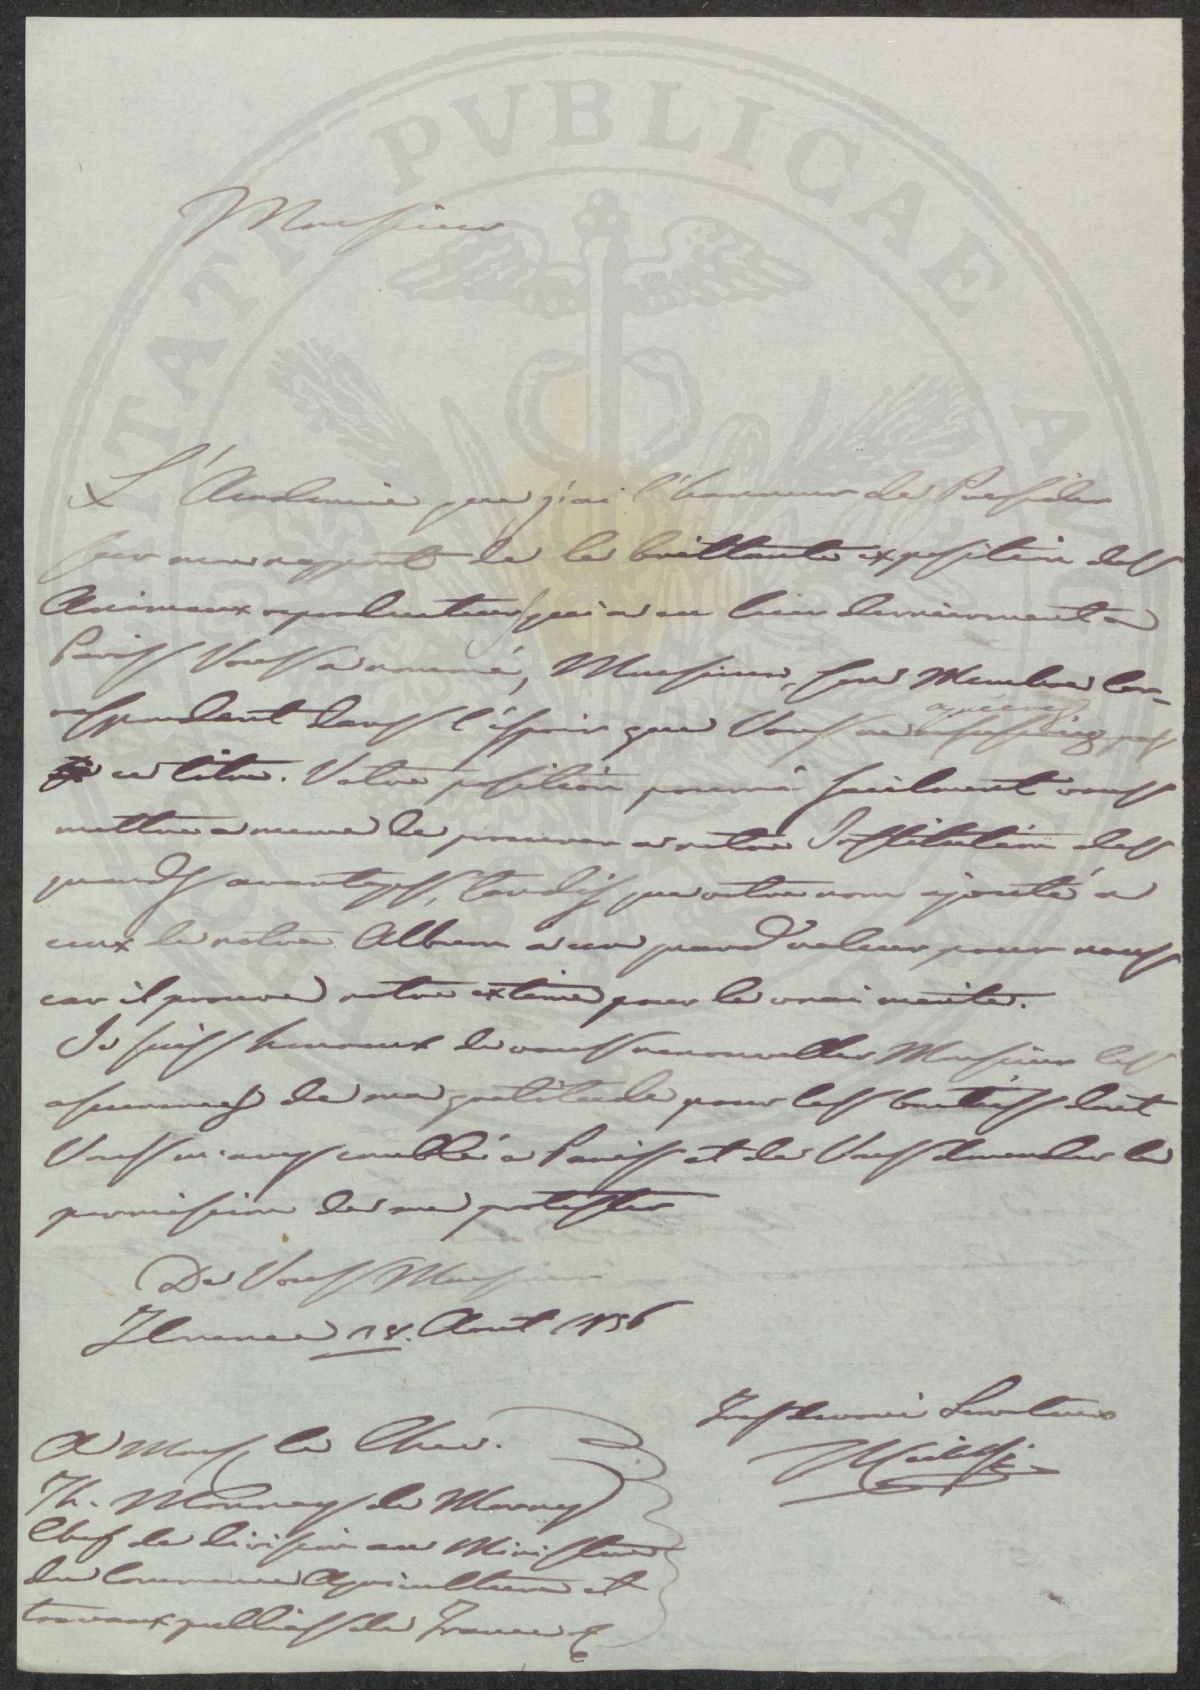 PROSPERITATI PVBLICAE AVGENDAE
Monsieur
L'Academie que j'ai l'honneur de Presider
sur mon rapport de la brillante exposition des
Animaux reproducteurs qui a eu lieu dernierement a
Paris Vous a nommé, Monsieur, son Membre Cor-
respondent dans l'éspoir que Vous ne refuseriez pas
agréerez
ce titre. Votre position pourra facilment vous
mettre a meme de procurer a notre Institution des
grands avantages, tandis que votre nom ajouté a
ceux de notre Album a un grand valeur pour nous
car il prouve notre extime pour le vrai merite.
Je suis heureux de vous renouveller Monsieur les
assurances de ma gratitude pour les bontés dont
Vous m'avez comblé a Paris et de Vous demander la
permission de me protester
De Vous Monsieur
Florence 18. Aout 1856
A Mons. le Chev.
Th. Monny de Mornay
Chef de division au Ministere
du Commerce Agriculture et
travaux publics de France
Serviteur